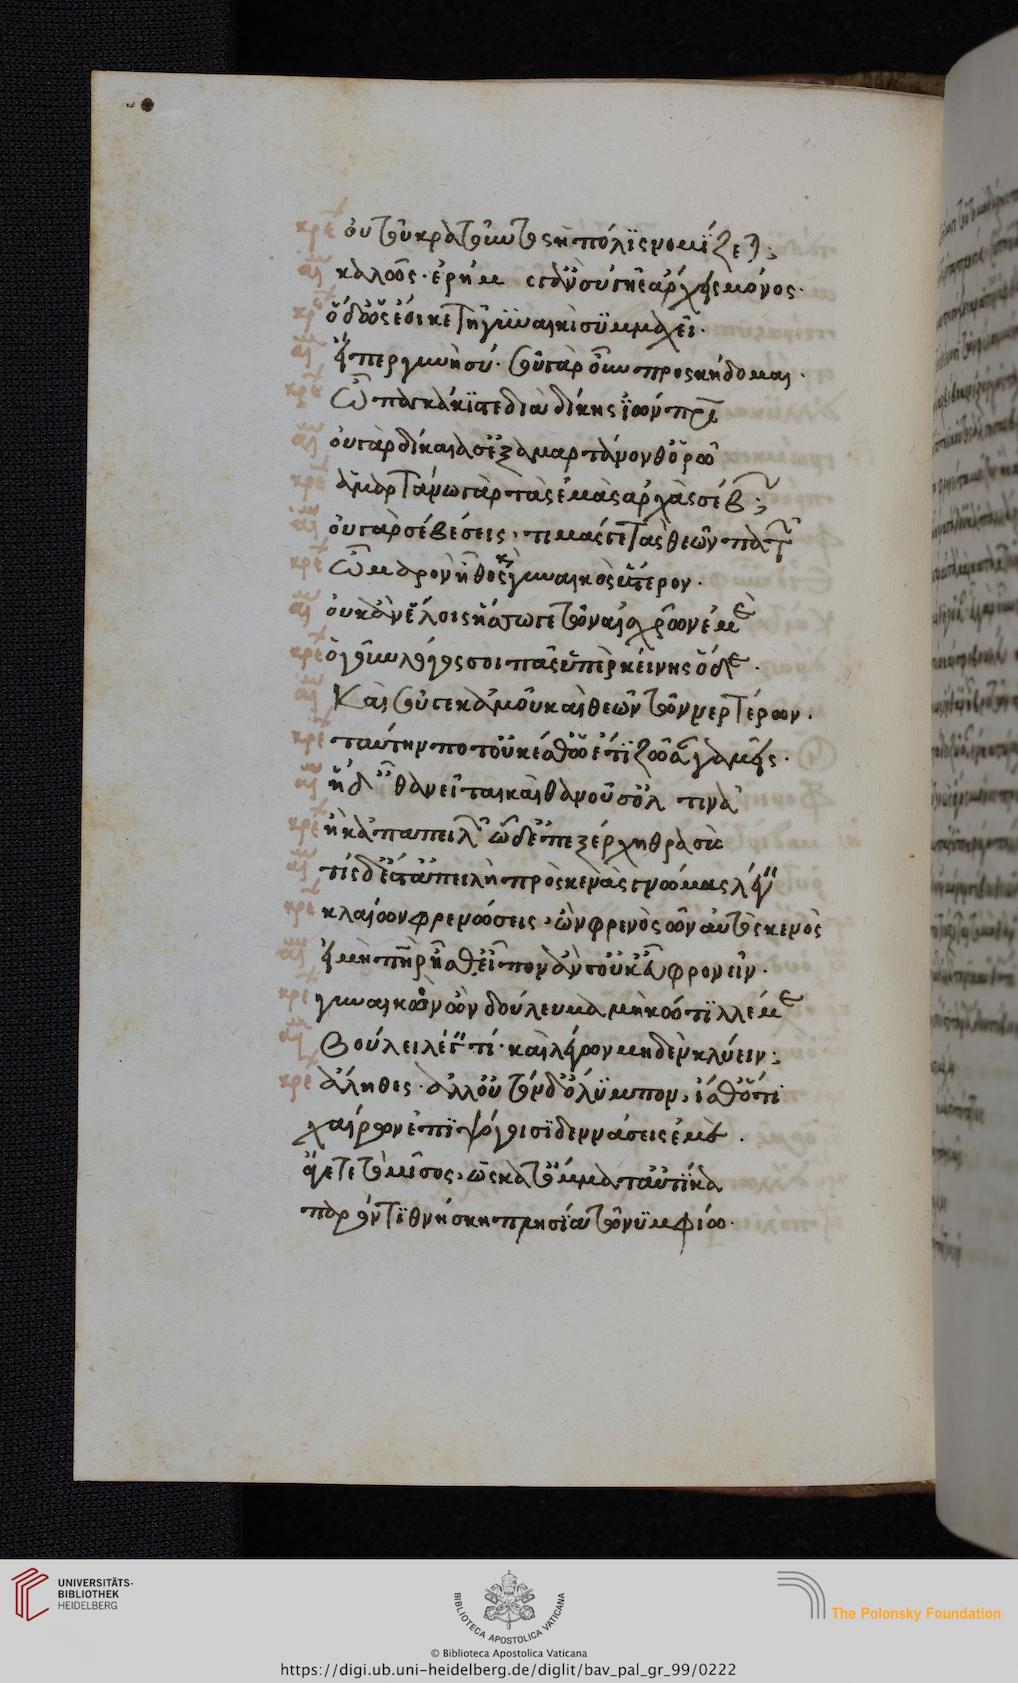 κρε οὐ τοῦ κρατοῦντος ἡ πόλις νομίζεται;
αἵ καλῶς. ἐρήμης γ' ἂν σύ γῆς ἄρχοις μόνος.
κρε ὅδ' ὡς ἔοικε τῇ γυναικὶ συμμαχεῖ.
αἵ εἴπερ γυνὴ σύ. σοῦ γὰρ οὖν προκήδομαι.
κρε ὦ παγκάκιστε διὰ δίκης ἰὼν πατρί
αἵ οὐ γὰρ δίκαιά σ' ἐξαμαρτάνονθ' ὁρῶ
κρε ἁμαρτάνω γὰρ τὰς ἐμὰς ἀρχὰς σέβων;
αἵ οὐ γὰρ σέβεις, τιμάς γε τὰς θεῶν πατῶν
κρε ὦ μιαρὸν ἦθος καὶ γυναικὸς ὕστερον.
αἵ οὐκ ἂν ἕλοις ἥσσω γε τῶν αἰσχρῶν ἐμέ
κρε ὁ γοῦν λόγος σοι πᾶς ὑπὲρ κείνης ὅδε.
αἵ Καὶ σοῦ γε κἀμοῦ καὶ θεῶν τῶν νερτέρων.
κρε ταύτην ποτ' οὐκ ἔσθ' ὡς ἔτι ζῶσαν γαμεῖς.
αἵ ἥδ' οὖν θανεῖται καὶ θανοῦσ' ὀλεῖ τινά
κρε ἦ κἀπαπειλῶν ὧδ' ἐπεξέρχῃ θρασύς
αἵ τίς δ' ἔστ' ἀπειλὴ πρὸς κενὰς γνώμας λέγειν
κρε κλαίων φρενώσεις, ὢν φρενῶν αὐτὸς κενὸς
αἵ εἰ μὴ πατὴρ ἦσθ' εἶπον ἄν σ' οὐκ εὖ φρονεῖν.
κρε γυναικὸς ὢν δούλευμα μὴ κώτιλλέ με
αἵ Βούλει λέγειν τί. καὶ λέγων μηδὲν κλύειν;
κρε ἄληθες. ἀλλ' οὐ τόνδ' ὄλυμπον, ἴσθ' ὅτι
χαίρων ἐπὶ ψόγοισι δεννάσεις ἐμέ.
ἄγετε τὸ μῖσος, ὡς κατ' ὄμματ' αὐτίκα
παρόντι θνήσκῃ πλησία τῷ νυμφίῳ.
UNIVERSITÄTS-
BIBLIOTHEK
HEIDELBERG
BIBLIOTECA APOSTOLICA VATICANA
The Polonsky Foundation
© Biblioteca Apostolica Vaticana
https://digi.ub.uni-heidelberg.de/diglit/bav_pal_gr_99/0222